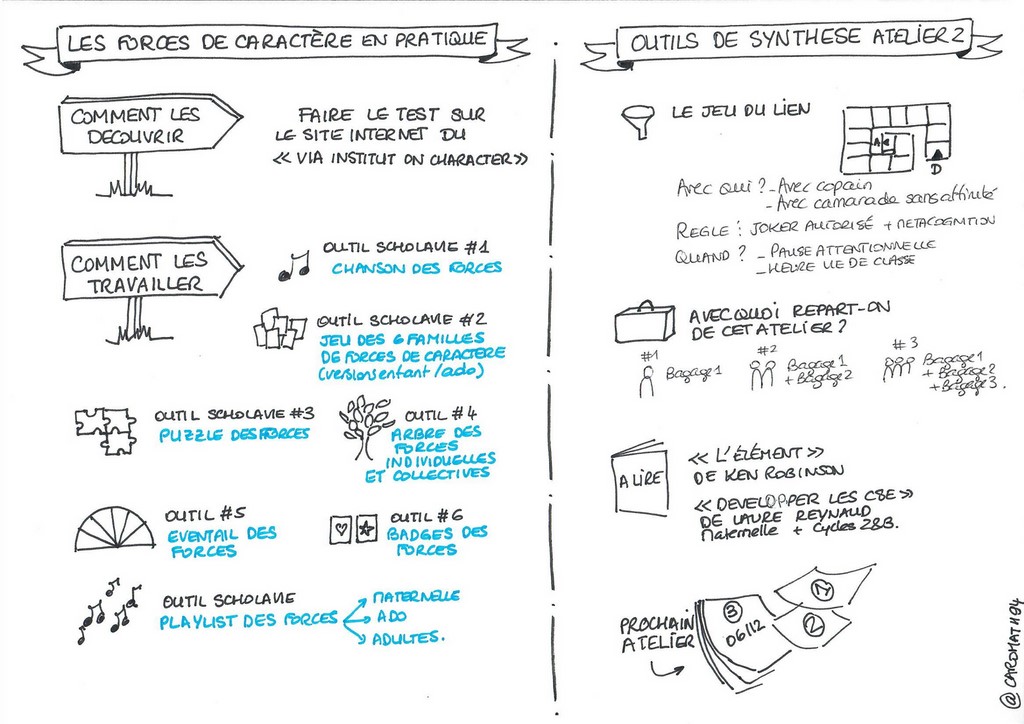 LES FORCES DE CARACTÈRE EN PRATIQUE
COMMENT LES
DECOUVRIR
FAIRE LE TEST SUR
LE SITE INTERNET DU
« VIA INSTITUT ON CHARACTER »
COMMENT LES
TRAVAILLER
OUTIL SCHOLAVIE #1
CHANSON DES FORCES
OUTIL SCHOLAVIE #2
JEU DES 6 FAMILLES
DE FORCES DE CARACTÈRE
(versions enfant/ado)
OUTIL SCHOLAVIE #3
PUZZLE DES FORCES
OUTIL #4
ARBRE DES
FORCES
INDIVIDUELLES
ET COLLECTIVES
OUTIL #5
EVENTAIL DES
FORCES
OUTIL #6
BADGES DES
FORCES
OUTIL SCHOLAVIE
PLAYLIST DES FORCES
MATERNELLE
ADO
ADULTES.
OUTILS DE SYNTHESE ATELIER 2
LE JEU DU LIEN
A
D
Avec qui ? - Avec copain
- Avec camarade sans affinité
REGLE : JOKER AUTORISÉ + METACOGNITION
QUAND ? - PAUSE ATTENTIONNELLE
- HEURE VIE DE CLASSE
AVEC QUOI REPART-ON
DE CET ATELIER ?
#1
Bagage 1
#2
Bagage 1
+ Bagage 2
#3
Bagage 1
+ Bagage 2
+ Bagage 3.
A LIRE
« L'ÉLÉMENT »
DE KEN ROBINSON
« DEVELOPPER LES CSE »
DE LAURE REYNAUD
Maternelle + Cycles 2&3.
PROCHAIN
ATELIER
3
06/12
1
2
@CAROMATH84